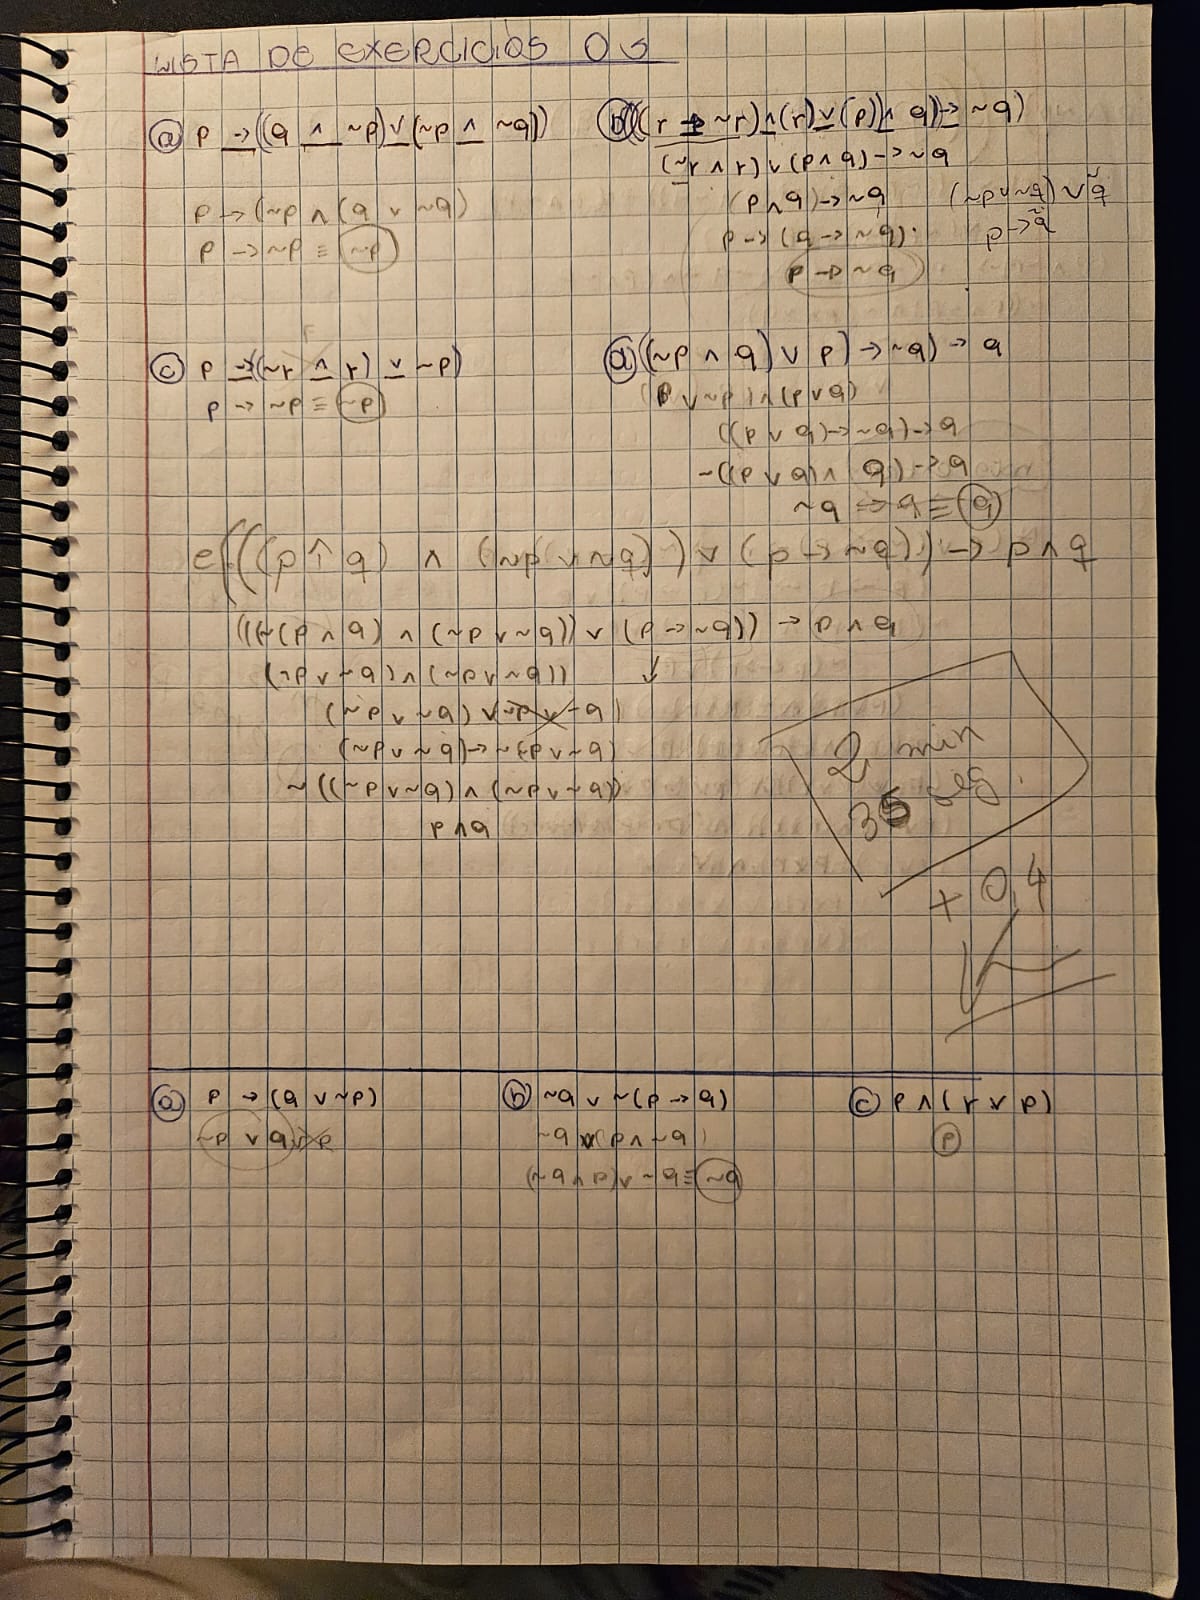 LISTA DE EXERCÍCIOS 05
a) p → ((q ∧ ~p) ∨ (~p ∧ ~q))
p → (~p ∧ (q ∨ ~q)
p → ~p ≡ ~p
b) (((r → ~r) ∧ (r) ∨ (p)) ∧ q) → ~q)
(~r ∧ r) ∨ (p ∧ q) → ~q
(p ∧ q) → ~q
p → (q → ~q).
p → ~q
(~p ∨ ~q) ∨ ~q
p → ~q
c) p → (~r ∧ r) ∨ ~p)
p → ~p ≡ ~p
d) ((~p ∧ q) ∨ p) → ~q) → q
(p ∨ ~p) ∧ (p ∨ q)
((p ∨ q) → ~q) → q
~((p ∨ q) ∧ q) → q
~q → q ≡ q
e) (((p ↑ q) ∧ (~p ∨ ~q)) ∨ (p → ~q)) → p ∧ q
(((~(p ∧ q) ∧ (~p ∨ ~q)) ∨ (p → ~q)) → p ∧ q
(~p ∨ ~q) ∧ (~p ∨ ~q)) ↓
(~p ∨ ~q) ∨ (~p ∨ ~q)
(~p ∨ ~q) → ~(~p ∨ ~q)
~((~p ∨ ~q) ∧ (~p ∨ ~q))
p ∧ q
2 min
35 seg.
+ 0,4
a) p → (q ∨ ~p)
~p ∨ q ∨ ~p
b) ~q ∨ ~(p → q)
~q ∨ (p ∧ ~q)
(~q ∧ p) ∨ ~q ≡ ~q
c) p ∧ (r ∨ p)
p